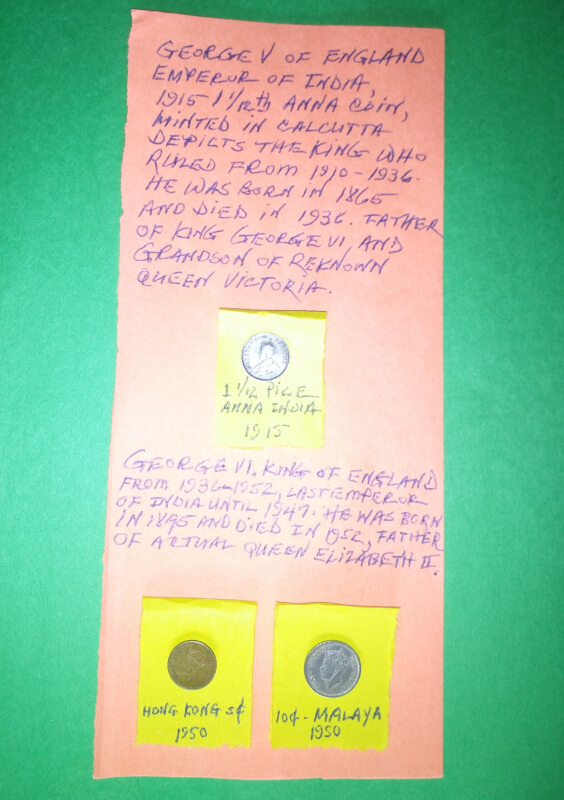 GEORGE V OF ENGLAND
EMPEROR OF INDIA,
1915 1 1/12th ANNA COIN,
MINTED IN CALCUTTA
DEPICTS THE KING WHO
RULED FROM 1910-1936.
HE WAS BORN IN 1865
AND DIED IN 1936. FATHER
OF KING GEORGE VI, AND
GRANDSON OF REKNOWN
QUEEN VICTORIA.
1 1/12 PICE
ANNA INDIA
1915
GEORGE VI, KING OF ENGLAND
FROM 1936-1952, LAST EMPEROR
OF INDIA UNTIL 1947. HE WAS BORN
IN 1895 AND DIED IN 1952, FATHER
OF ACTUAL QUEEN ELIZABETH II.
HONG KONG 5¢
1950
10¢ - MALAYA
1950